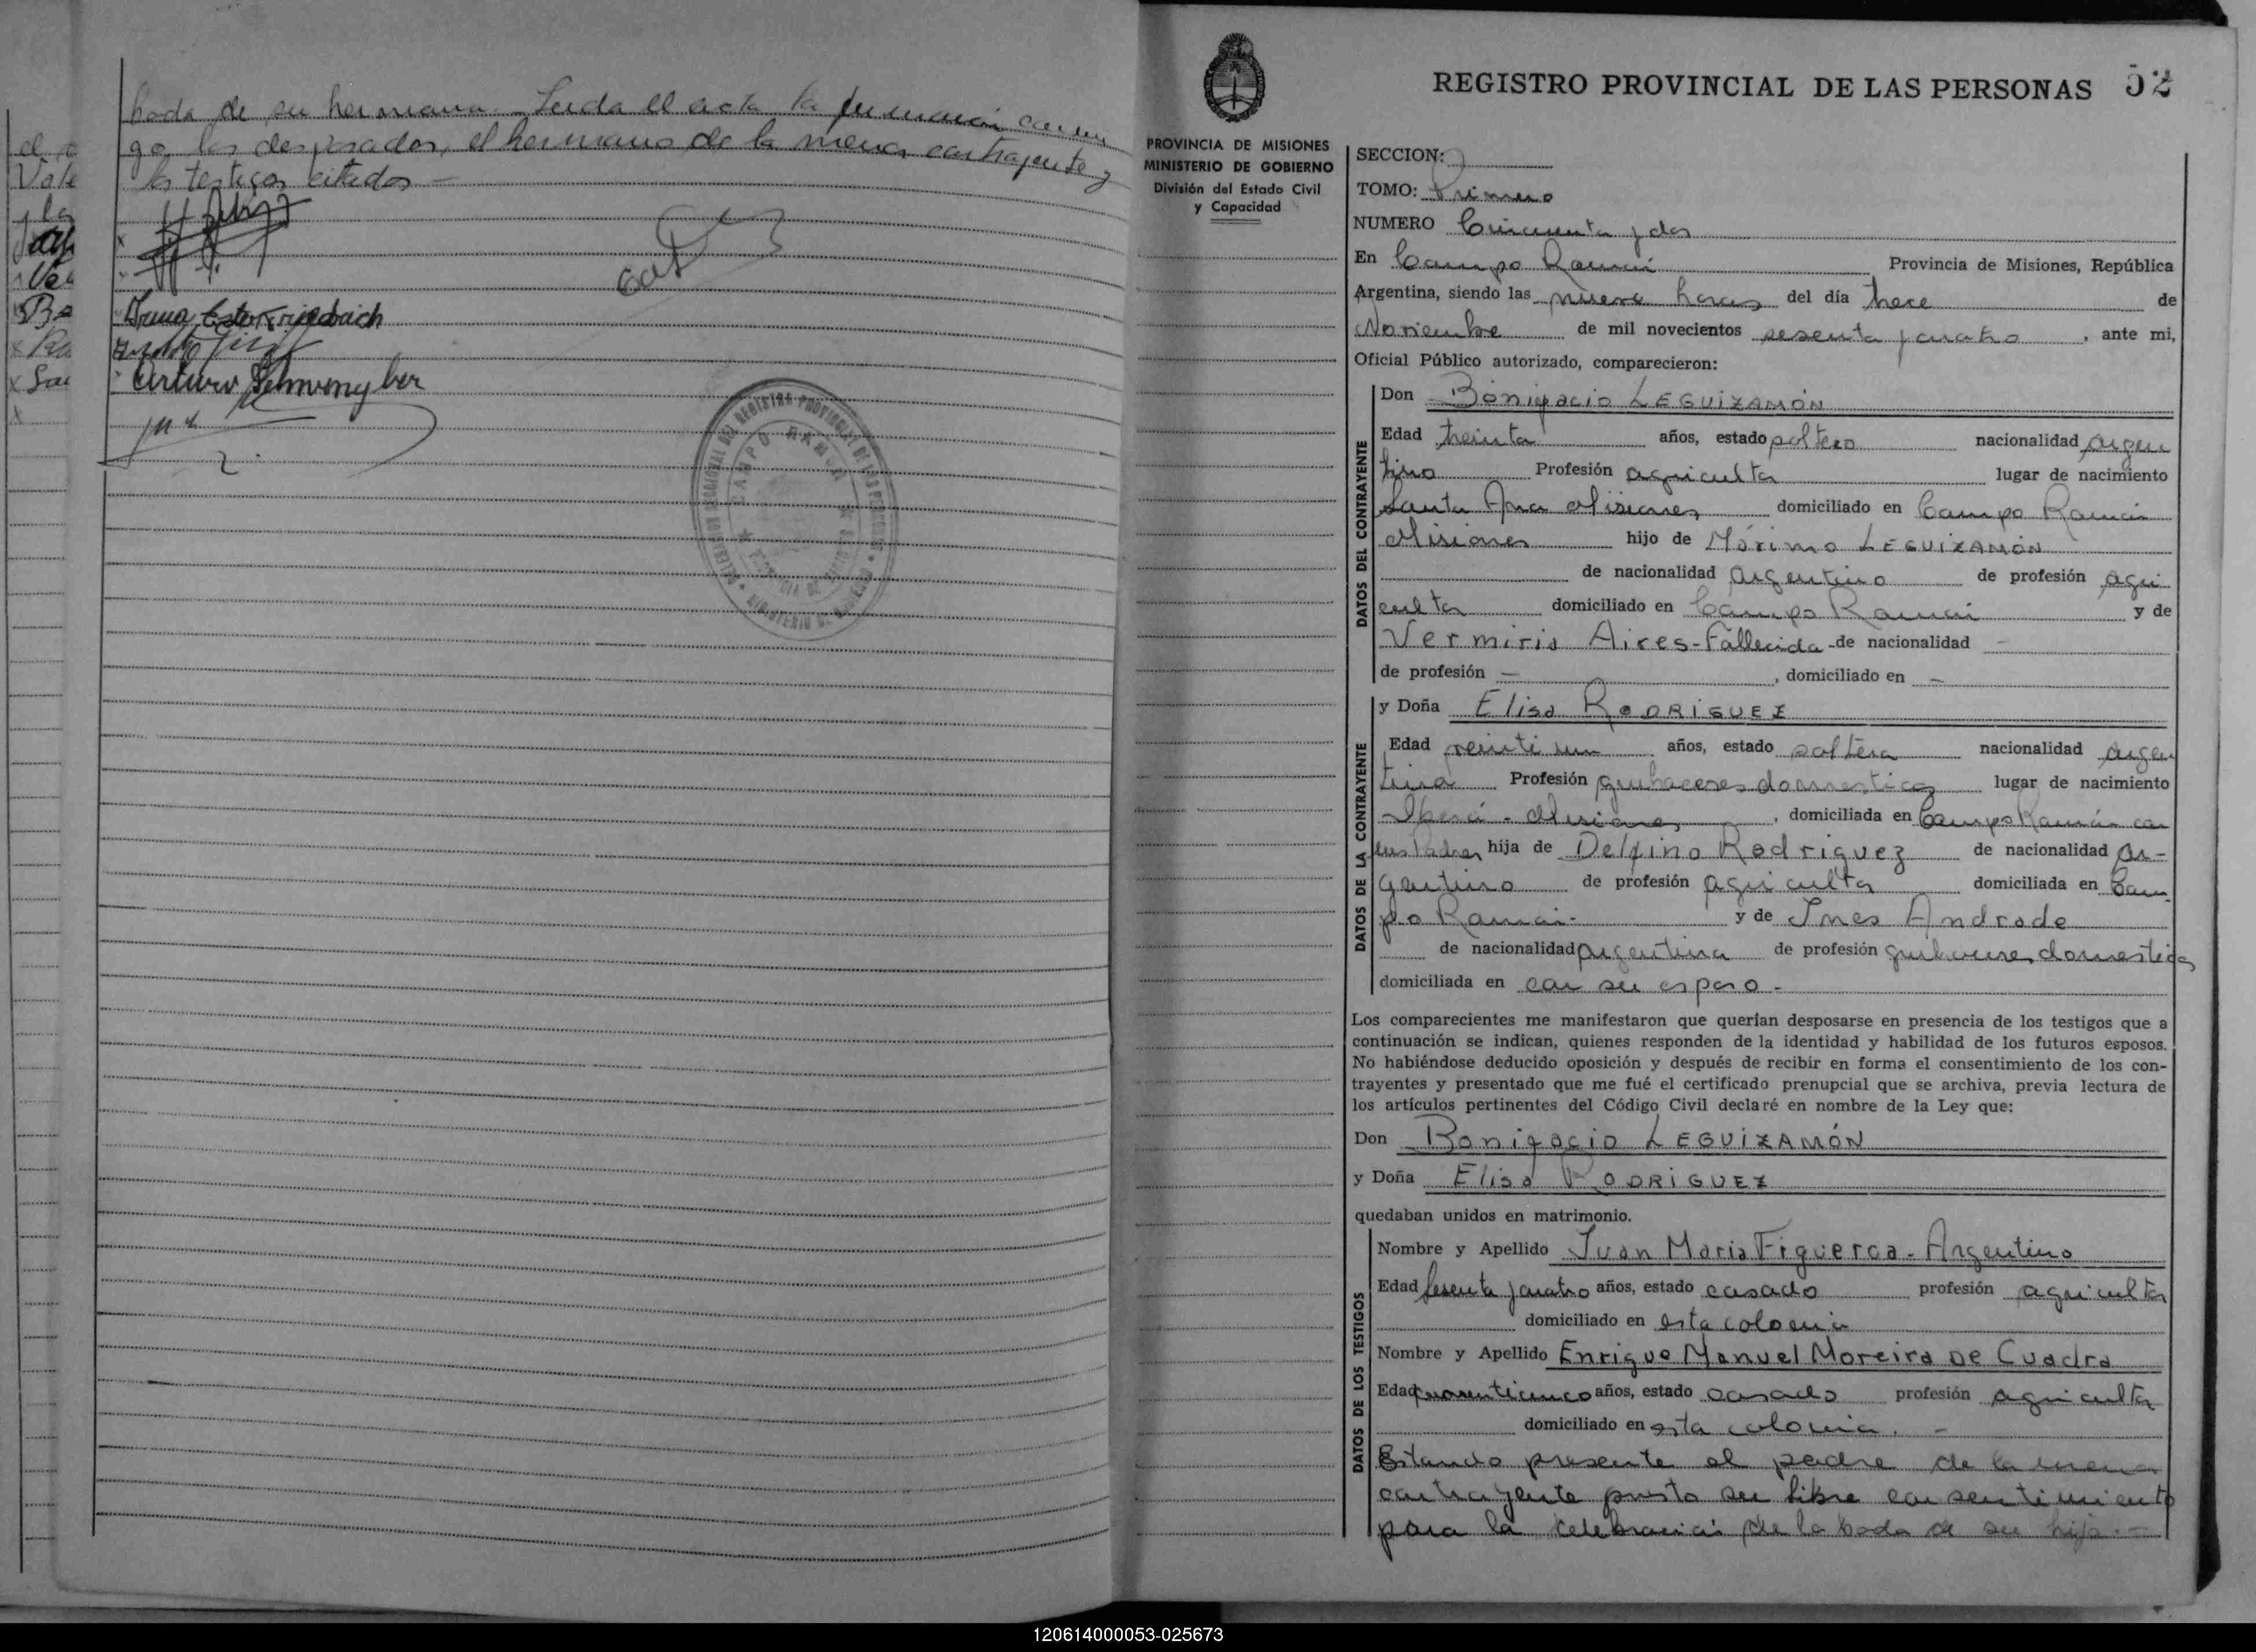 boda de su hermana. Leida el acta la firmaron conmi
go los desposados, el hermano de la menor contrayente y
los testigos citados —
Arturo
REGISTRO PROVINCIAL DE LAS PERSONAS 52
PROVINCIA DE MISIONES
MINISTERIO DE GOBIERNO
División del Estado Civil
y Capacidad
SECCION:
TOMO: Primero
NUMERO Cincuenta y dos
En Campo Ramón Provincia de Misiones, República
Argentina, siendo las nueve horas del día trece de
Noviembre de mil novecientos sesenta y cuatro, ante mi,
Oficial Público autorizado, comparecieron:
DATOS DEL CONTRAYENTE
Don Bonifacio LEGUIZAMÓN
Edad treinta años, estado soltero nacionalidad argen
tino Profesión agricultor lugar de nacimiento
Santa Ana Misiones domiciliado en Campo Ramón
Misiones hijo de Máximo LEGUIZAMÓN
de nacionalidad argentino de profesión agri
cultor domiciliado en Campo Ramón y de
Vermiria Aires-Fallecida-de nacionalidad —
de profesión —, domiciliado en —
y Doña Elisa RODRIGUEZ
DATOS DE LA CONTRAYENTE
Edad veinti un años, estado soltera nacionalidad argen
tina Profesión quehaceres domesticos lugar de nacimiento
Oberá - Misiones, domiciliada en Campo Ramón con
sus Padres hija de Delfino Rodriguez de nacionalidad Ar-
gentino de profesión agricultor domiciliada en Cam
po Ramón- y de Ines Andrade
de nacionalidad argentina de profesión quehaceres domesticos
domiciliada en con su esposo -
Los comparecientes me manifestaron que querían desposarse en presencia de los testigos que a
continuación se indican, quienes responden de la identidad y habilidad de los futuros esposos.
No habiéndose deducido oposición y después de recibir en forma el consentimiento de los con-
trayentes y presentado que me fué el certificado prenupcial que se archiva, previa lectura de
los artículos pertinentes del Código Civil declaré en nombre de la Ley que:
Don Bonifacio LEGUIZAMÓN
y Doña Elisa RODRIGUEZ
quedaban unidos en matrimonio.
DATOS DE LOS TESTIGOS
Nombre y Apellido Juan Maria Figueroa - Argentino
Edad sesenta y cuatro años, estado casado profesión agricultor
domiciliado en esta colonia
Nombre y Apellido Enrique Manuel Moreira De Cuadra
Edad cuarenticinco años, estado casado profesión agricultor
domiciliado en esta colonia. -
Estando presente el padre de la menor
contrayente presto su libre consentimiento
para la celebración de la boda de su hija. —
120614000053-025673